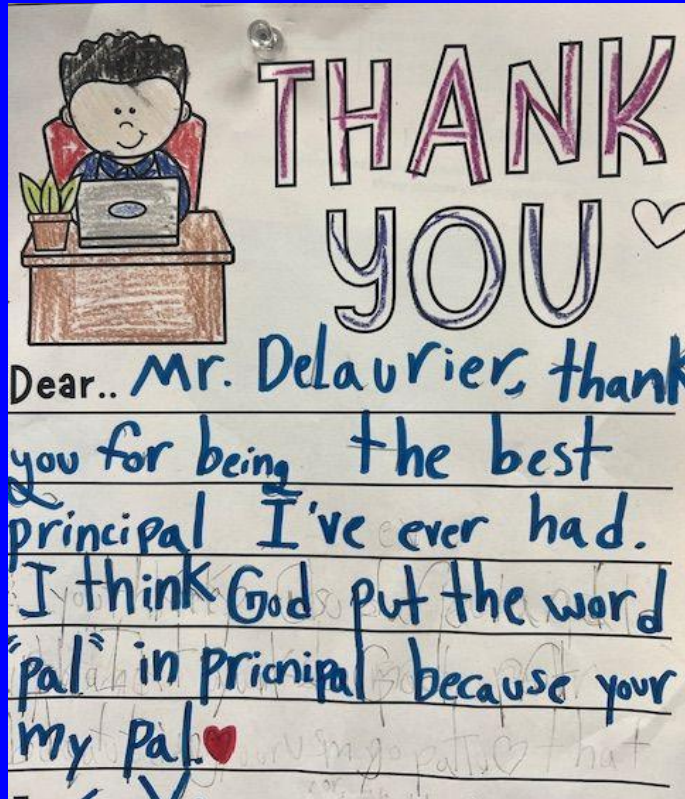 THANK
YOU
Dear.. Mr. Delaurier, thank
you for being the best
principal I've ever had.
I think God put the word
"pal" in pricnipal because your
my pal.